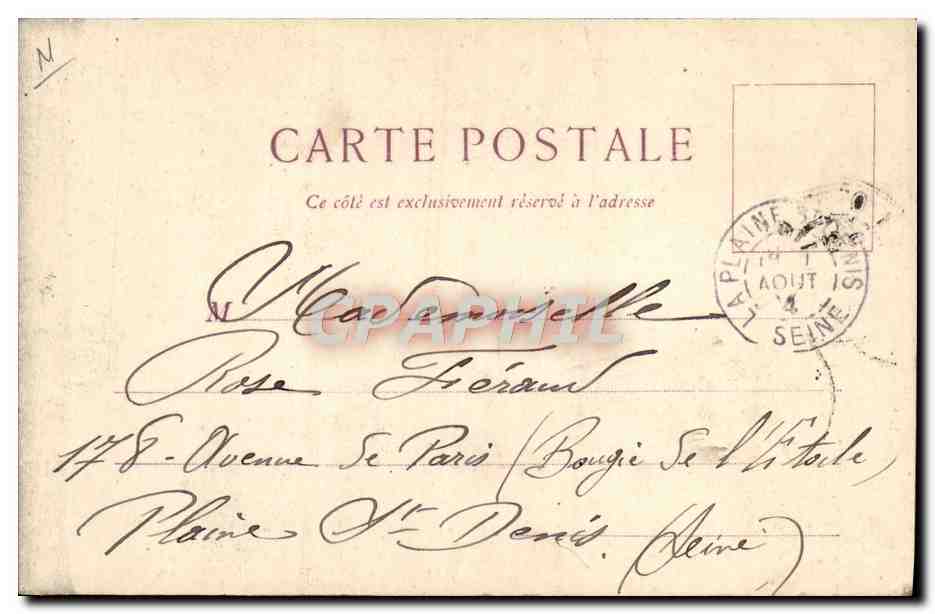 N
CARTE POSTALE
Ce côté est exclusivement réservé à l'adresse
LA PLAINE ST DENIS
AOUT
SEINE
M
Mademoiselle
CPAPHIL
Rose Féraud
178 - Avenue de Paris (Bougie de l'Etoile)
Plaine St Denis. (Seine)